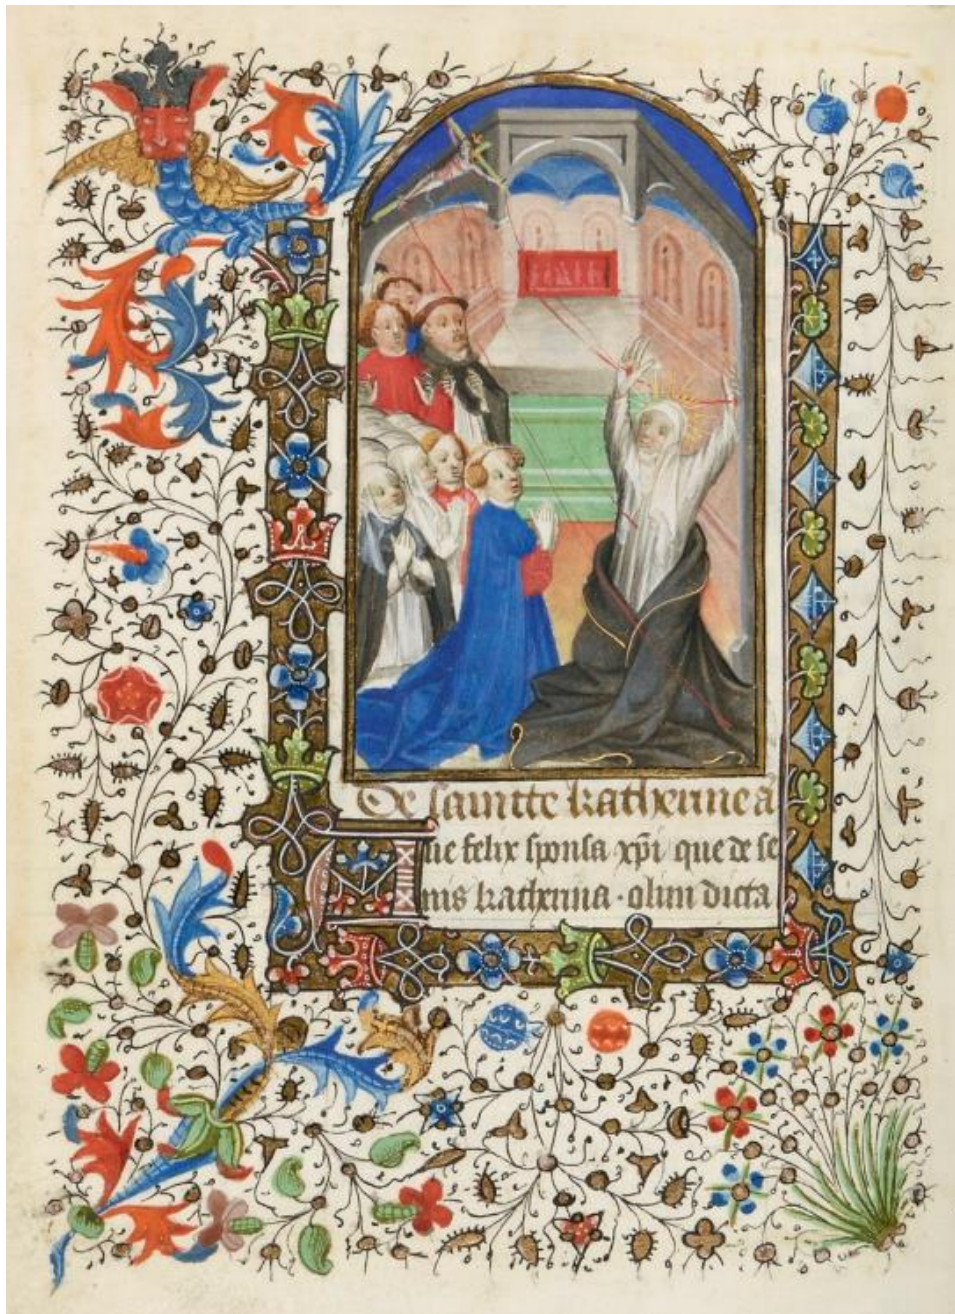 De saintte katherine a
Aue felix sponsa xp̄i que de se
nis katherina · olim dicta